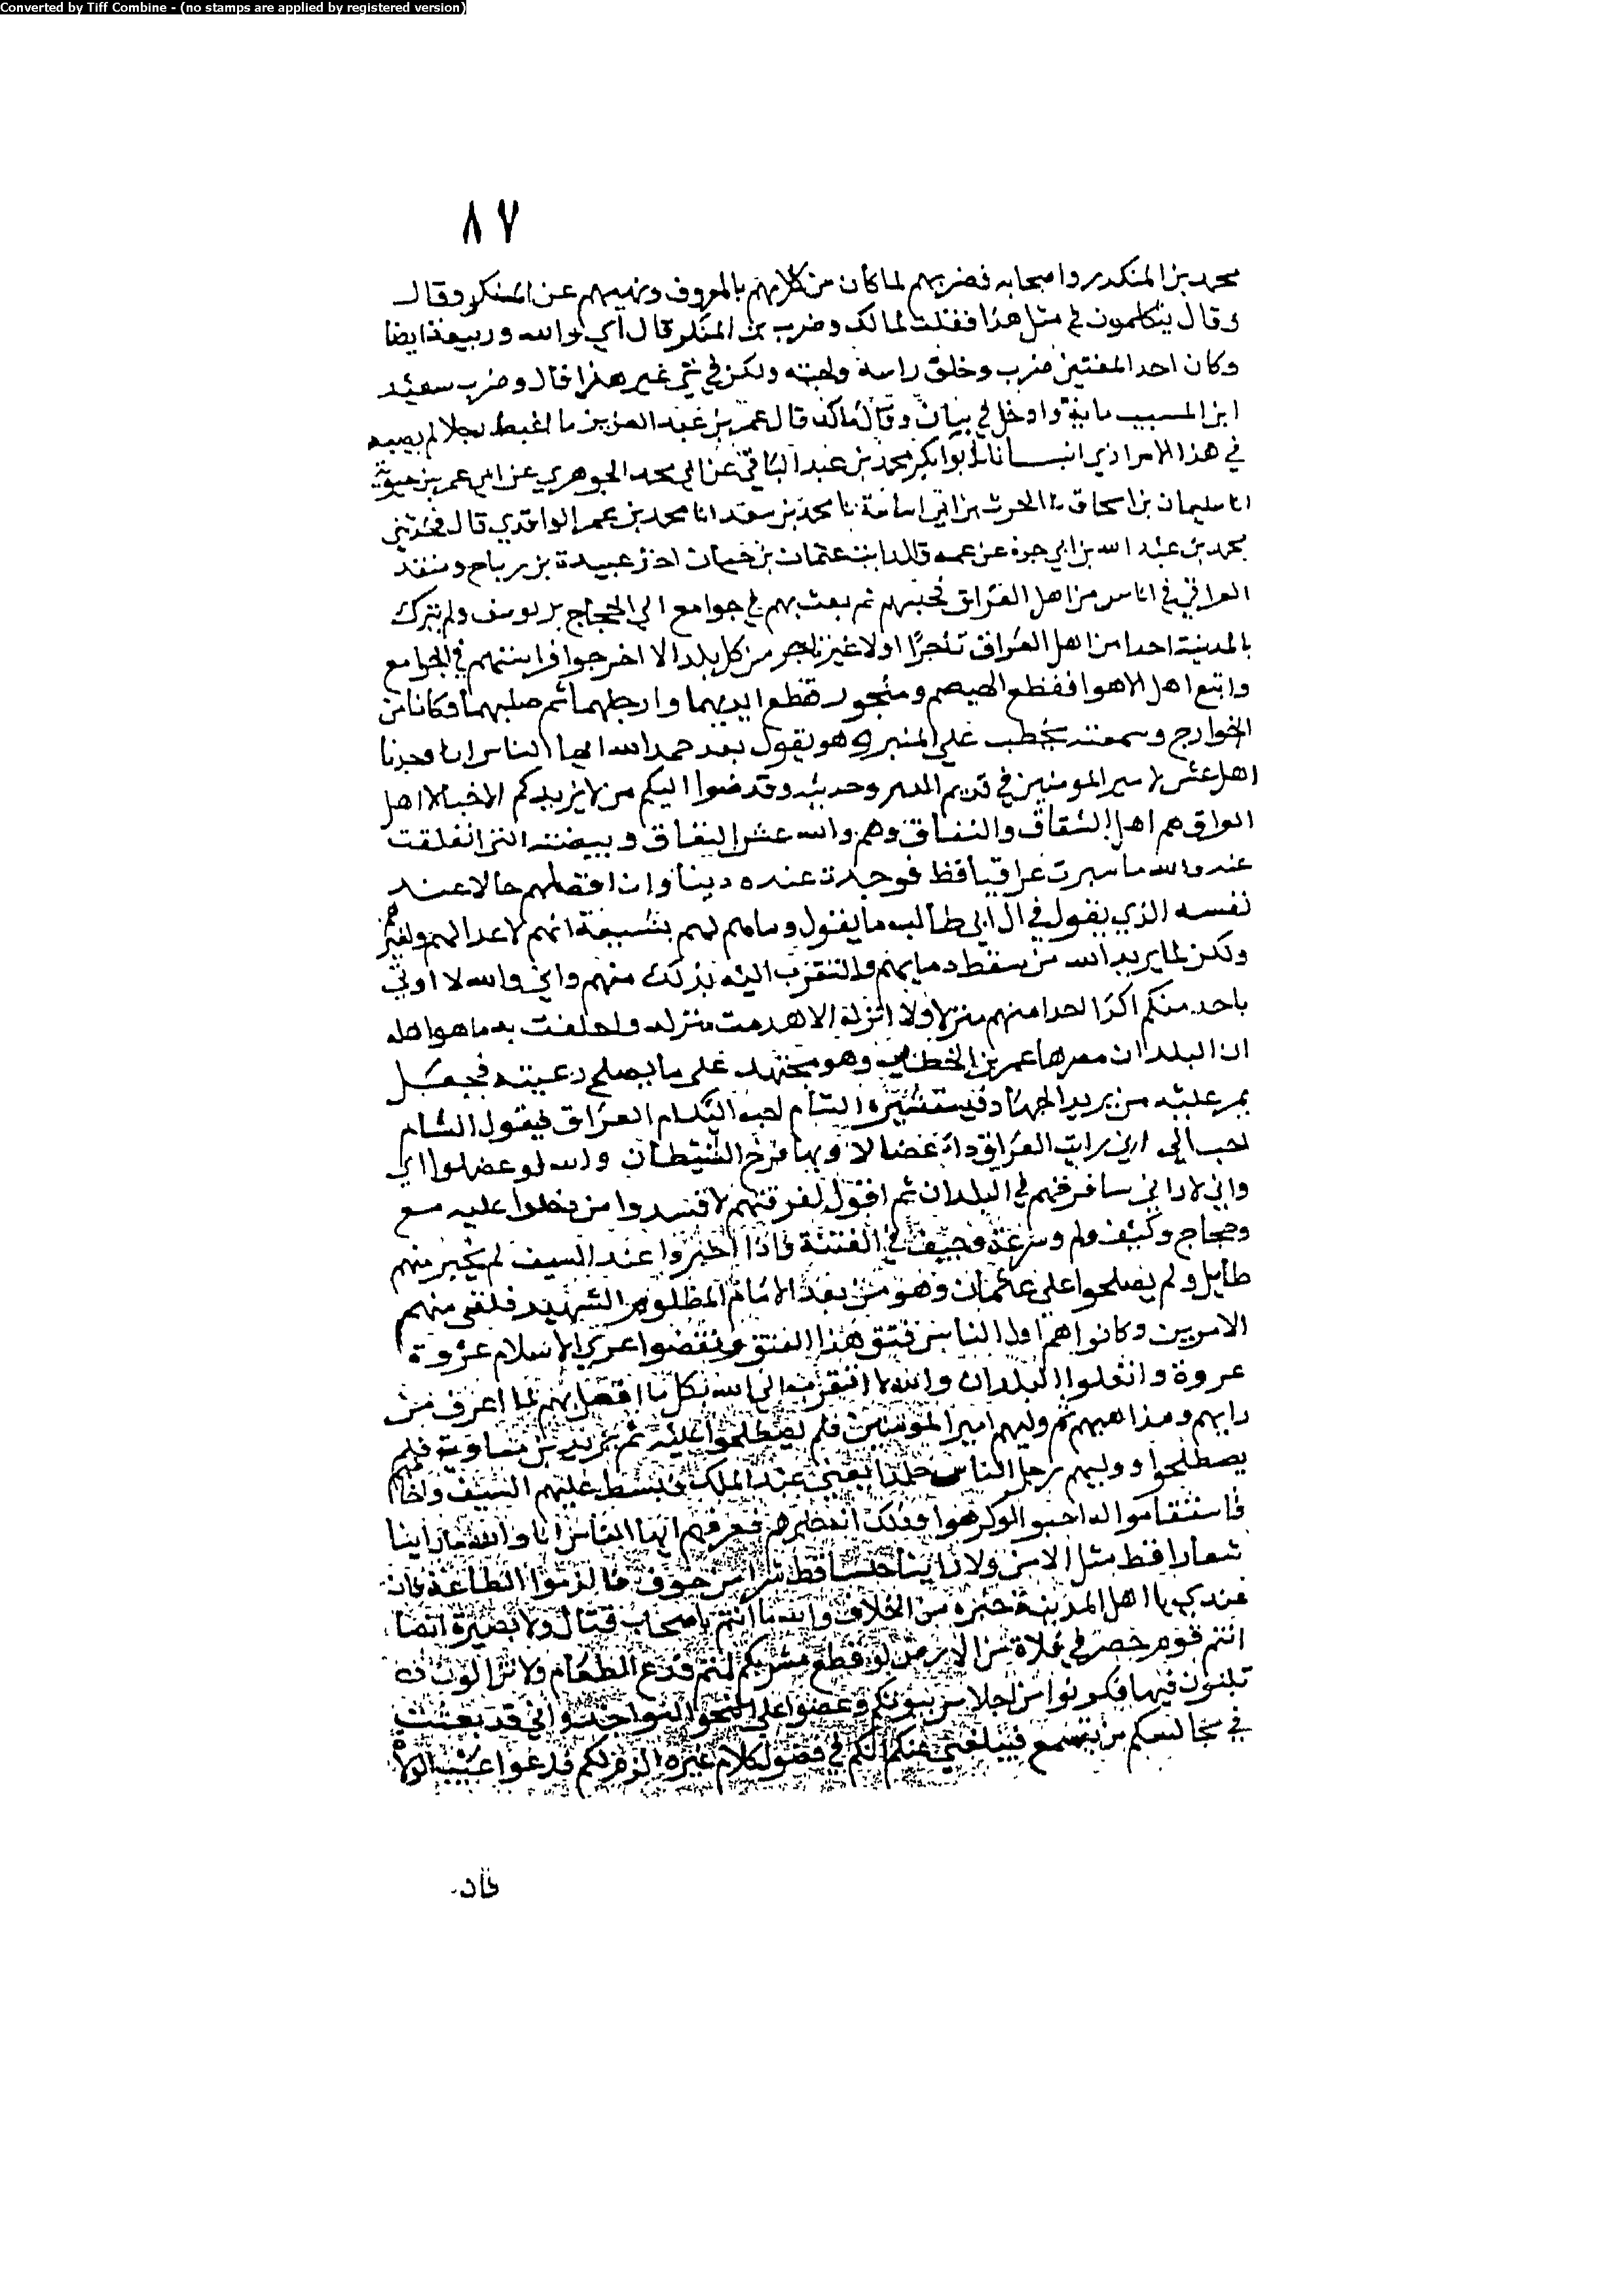 Converted by Tiff Combine - (no stamps are applied by registered version)
٨٧
محمد بن المنكدر واصحابه فضربهم لما كان من كلامهم بالمعروف ونهيهم عن المنكر وقال
وقال يتكلمون في مثل هذا فقلت لمالك وضرب بن المنكدر قال اي والله وربيعة ايضا
وكان احد المفتين ضرب وحلق راسه ولحيته ولكن في غير هذا قال وضرب سعيد
ابن المسيب ماية وادخل في وقال مالك قال عمر بن عبد العزيز ما اغبط رجلا لم يصبه
في هذا الامر اذي انبانا ابو بكر محمد بن عبد الباقي عن ابي محمد الجوهري عن ابي عمر بن حيوية
انا سليمان بن اسحاق نا الحرث بن ابي اسامة نا محمد بن سعد انا محمد بن عمر الواقدي قال فحدثني
محمد بن عبد الله بن ابي عن عمه قال رايت عثمان بن حيان اخذ عبيدة بن رباح ومنقذ
العراقي في اناس من اهل العراق فحبسهم ثم بعث بهم في جوامع الي الحجاج بن يوسف ولم يترك
بالمدينة احدا من اهل العراق تاجرا اولا غير تاجر من كل بلد الا اخرجوا فرايتهم في الجوامع
واتبع اهل الاهوا فقطع الهيصم ومنحور فقطع ايديهما وارجلهما ثم صلبهما وكانا من
الخوارج وسمعته يخطب علي المنبر وهو يقول بعد حمد الله ايها الناس انا وجدنا
اهل غش لامير المومنين في قديم الدهر وحديثه وقد ضوا اليكم من لا يزيدكم الا خبالا اهل
العراق هم اهل الشقاق والنفاق وهم والله عش النفاق وبيضته التي انفلقت
عنه والله ما سبرت عراقيا قط فوجدت عنده دينا وان افضلهم حالا عند
نفسه الذي يقول في ال ابي طالب ما يقول وما هم لهم بشيعة انهم لاعدا لهم ولغيرهم
ولكن لما يريد الله من سفك دمايهم والتقرب اليه بذلك منهم واني والله لا اوتي
باحد منكم اكرا احدا منهم منزلا ولا انزله الا هدمت منزله واحلفت به ما هو اهله
ان البلدان مصرها عمر بن الخطاب وهو مجتهد علي ما يصلح رعيته فجعل
يمر عليه من يريد الجهاد فيستشيره الشام احب اليك ام العراق فيقول الشام
احب الي اني رايت العراق داء عضالا وبها فرخ الشيطان والله لو عضلوا ابي
واني لاراني سافرقهم في البلدان ثم اقول لو فرقتهم لافسدوا من دخلوا عليه مع
وحجاج وكيف ولم وسرعة وجيف في الفتنة فاذا اختبروا عند السيف لم يخبر منهم
طايل ولم يصلحوا علي عثمان وهو من بعد الامام المظلوم الشهيد فلقي منهم
الامرين وكانوا هم اول الناس فتق هذا الفتق ونقضوا عري الاسلام عروة
عروة وانغلوا البلدان والله اني اتقرب الي الله بكل ما افعل بهم لما اعرف من
رايهم ومذاهبهم ثم وليهم امير المومنين فلم يصطلحوا عليه ثم يزيد بن معاوية فلم
يصطلحوا ووليهم رجل الناس جلدا يعني عبد الملك فبسط عليهم السيف واخافهم
فاستقاموا له احبوا او كرهوا وذلك انه خبرهم فعرفهم ايها الناس انا والله ما راينا
شعارا قط مثل الامن ولا راينا حلسا قط شرا من خوف فالزموا الطاعة فان
عندي يا اهل المدينة خبره من الخلاف والله ما انتم باصحاب قتال ولا بصيرة انما
انتم قوم حضر في فلاة من الارض لو قطع مشربكم لمتم فدع الطعام ولا تزالون
تلبثون فيها فكونوا من احلاس بيوتكم وعضوا علي النواجذ واني قد بعثت
في مجالسكم من يسمع فيبلغني عنكم انكم في فضول كلام غيره الزم لكم فدعوا عيب الولاة
فان